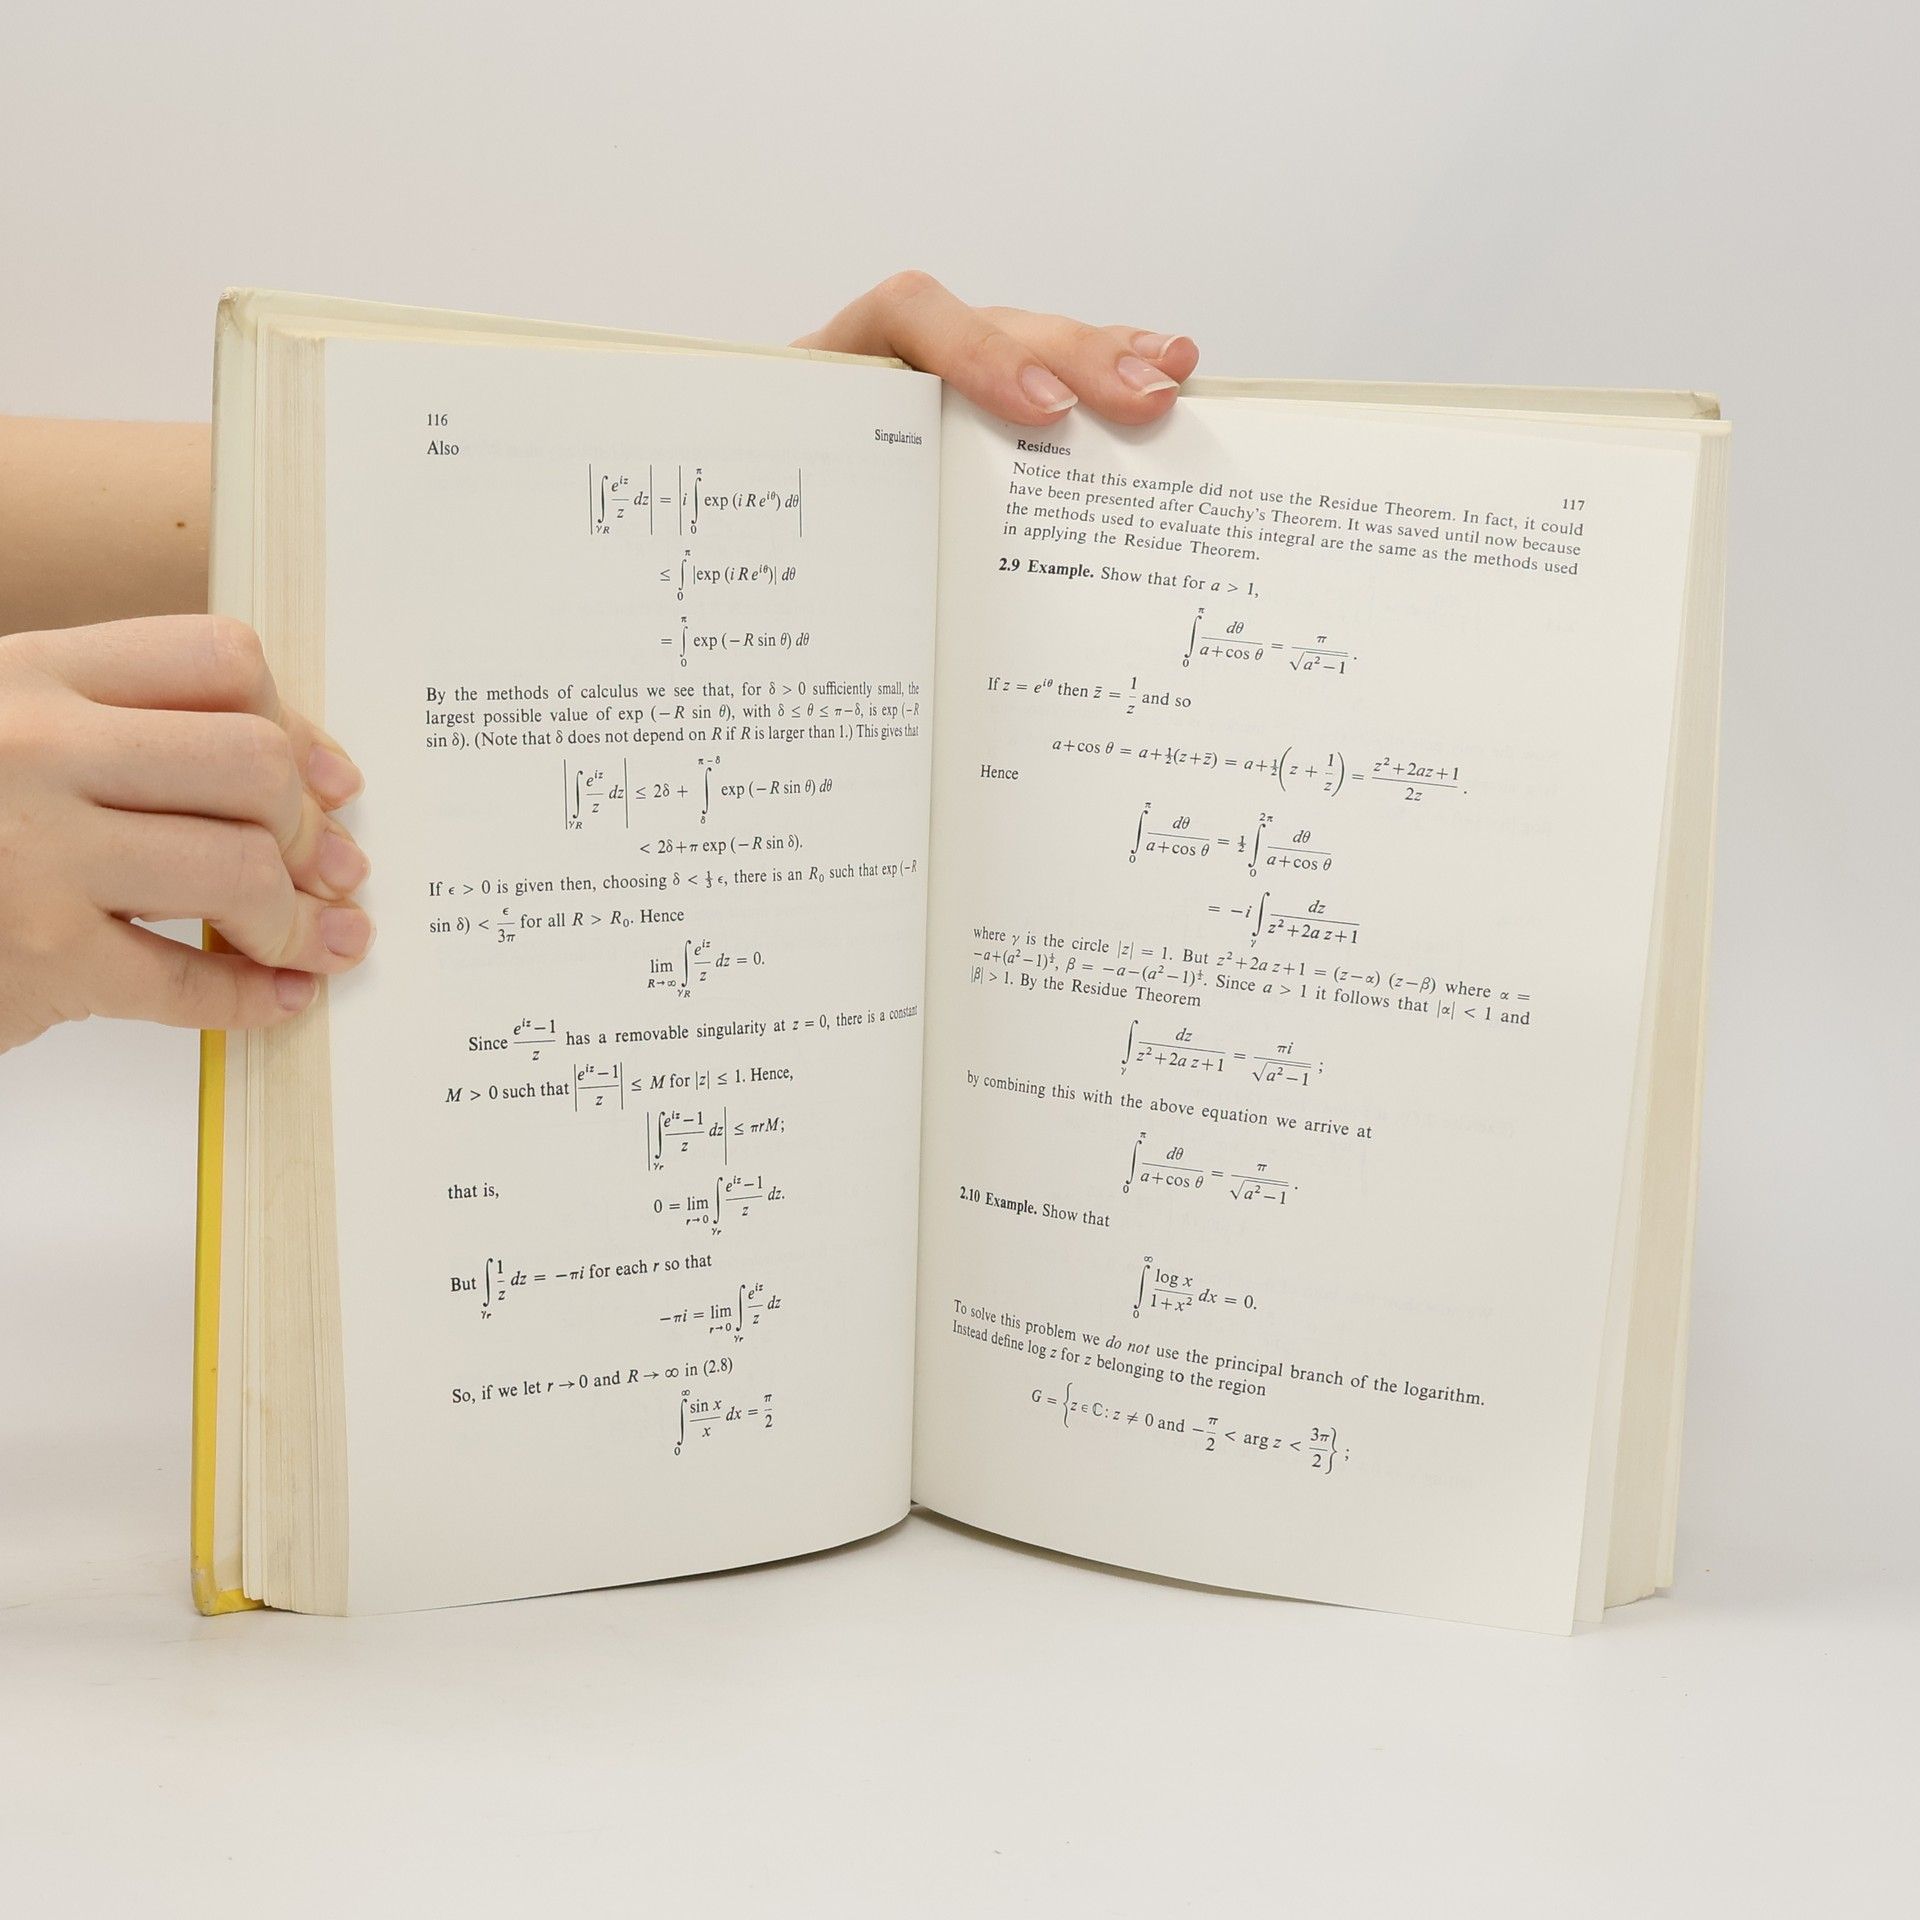 116
Singularities
Also
|∫_{γ_R} e^{iz}/z dz| = |i ∫_0^π exp (i R e^{iθ}) dθ|
≤ ∫_0^π |exp (i R e^{iθ})| dθ
= ∫_0^π exp (−R sin θ) dθ
By the methods of calculus we see that, for δ > 0 sufficiently small, the
largest possible value of exp (−R sin θ), with δ ≤ θ ≤ π−δ, is exp (−R
sin δ). (Note that δ does not depend on R if R is larger than 1.) This gives that
|∫_{γ_R} e^{iz}/z dz| ≤ 2δ + ∫_δ^{π−δ} exp (−R sin θ) dθ
< 2δ+π exp (−R sin δ).
If ϵ > 0 is given then, choosing δ < ⅓ ϵ, there is an R₀ such that exp (−R
sin δ) < ϵ/3π for all R > R₀. Hence
lim_{R→∞} ∫_{γ_R} e^{iz}/z dz = 0.
Since (e^{iz}−1)/z has a removable singularity at z = 0, there is a constant
M > 0 such that |(e^{iz}−1)/z| ≤ M for |z| ≤ 1. Hence,
|∫_{γ_r} (e^{iz}−1)/z dz| ≤ πrM;
that is,
0 = lim_{r→0} ∫_{γ_r} (e^{iz}−1)/z dz.
But ∫_{γ_r} 1/z dz = −πi for each r so that
−πi = lim_{r→0} ∫_{γ_r} e^{iz}/z dz
So, if we let r → 0 and R → ∞ in (2.8)
∫_0^∞ sin x/x dx = π/2
Residues
117
Notice that this example did not use the Residue Theorem. In fact, it could
have been presented after Cauchy's Theorem. It was saved until now because
the methods used to evaluate this integral are the same as the methods used
in applying the Residue Theorem.
2.9 Example. Show that for a > 1,
∫_0^π dθ/(a+cos θ) = π/√(a²−1).
If z = e^{iθ} then z̄ = 1/z and so
a+cos θ = a+½(z+z̄) = a+½(z + 1/z) = (z²+2az+1)/2z.
Hence
∫_0^π dθ/(a+cos θ) = ½ ∫_0^{2π} dθ/(a+cos θ)
= −i ∫_γ dz/(z²+2a z+1)
where γ is the circle |z| = 1. But z²+2a z+1 = (z−α) (z−β) where α =
−a+(a²−1)^½, β = −a−(a²−1)^½. Since a > 1 it follows that |α| < 1 and
|β| > 1. By the Residue Theorem
∫_γ dz/(z²+2a z+1) = πi/√(a²−1);
by combining this with the above equation we arrive at
∫_0^π dθ/(a+cos θ) = π/√(a²−1).
2.10 Example. Show that
∫_0^∞ log x/(1+x²) dx = 0.
To solve this problem we do not use the principal branch of the logarithm.
Instead define log z for z belonging to the region
G = {z ∈ ℂ: z ≠ 0 and −π/2 < arg z < 3π/2};